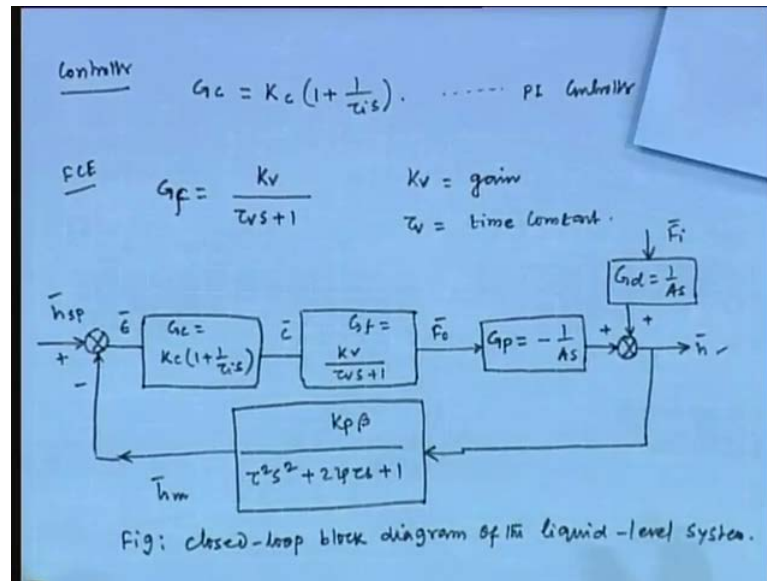 Controller
Gc = Kc (1 + 1/τis). ...... PI Controller
FCE
Gf = Kv/(τvs + 1)
Kv = gain
τv = time constant.
F̄i
Gd = 1/As
h̄sp
ε̄
Gc = Kc(1+1/τis)
c̄
Gf = Kv/(τvs+1)
F̄o
Gp = - 1/As
+
+
h̄
+
-
Kpβ/(τ²s² + 2ψτs + 1)
h̄m
Fig: closed-loop block diagram of the liquid-level system.